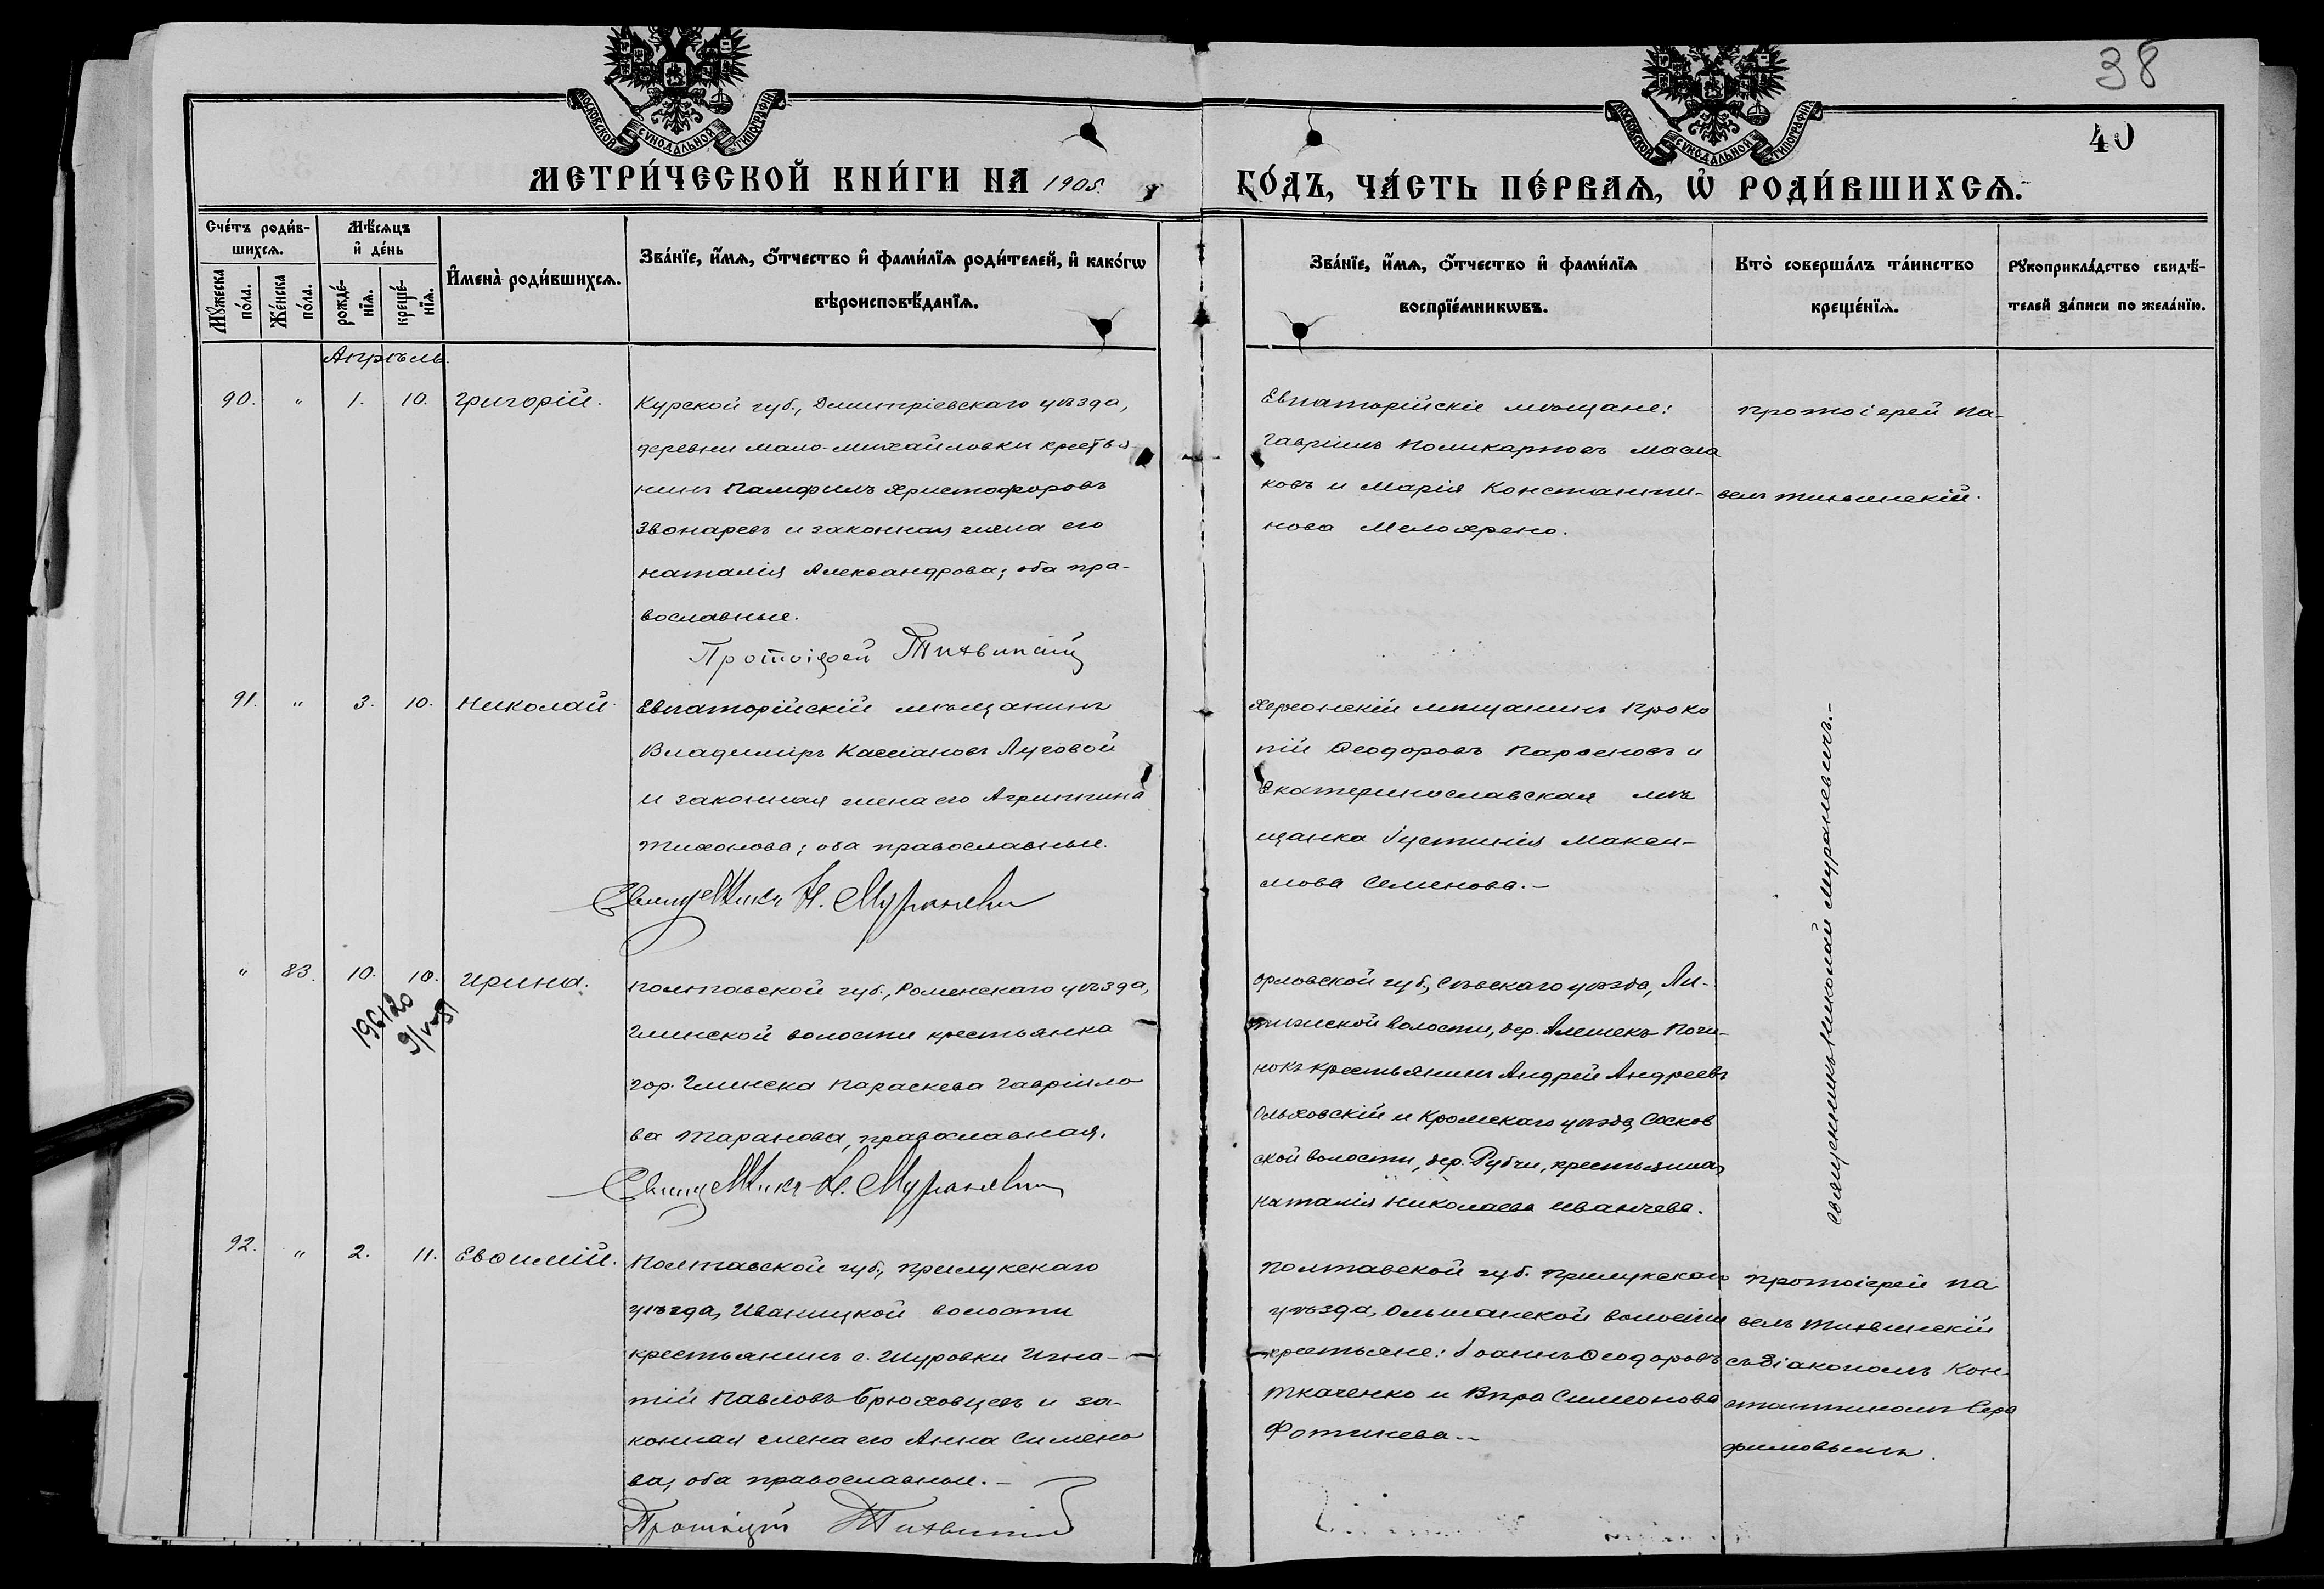 38
40
МОСКОВСКОЙ СѴНОДАЛЬНОЙ ТИПОГРАФІИ
МОСКОВСКОЙ СѴНОДАЛЬНОЙ ТИПОГРАФІИ
МЕТРИ́ЧЕСКОЙ КНИ́ГИ НА 1905. ГО́ДЪ, ЧА́СТЬ ПЕ́РВАѦ, Ѡ҆ РОДИ́ВШИХСѦ.
Сче́тъ роди́в-
шихсѧ.
Мꙋ́жеска по́ла.
Же́нска по́ла.
Мѣ́сѧцъ
и҆ де́нь
рожде́-
нїѧ.
креще́-
нїѧ.
И҆мена̀ роди́вшихсѧ.
Зва́нїе, и҆́мѧ, ѻ҆́тчество и҆ фами́лїѧ роди́телей, и҆ како́гѡ
вѣроисповѣ́данїѧ.
Зва́нїе, и҆́мѧ, ѻ҆́тчество и҆ фами́лїѧ
воспрїе́мникѡвъ.
Кто̀ соверша́лъ та́инство
креще́нїѧ.
Рꙋкоприкла́дство свидѣ́-
телей за́писи по жела́нїю.
Апрѣль.
90. " 1. 10. Григорій.
Курской губ., Дмитріевскаго уѣзда,
деревни Мало-Михайловки крестья
нинъ Памфилъ Христофоровъ
Звонаревъ и законная жена его
Наталія Александрова; оба пра-
вославные.
Протоіерей Тихвинскій
Евпаторійскіе мѣщане:
Гавріилъ Поликарповъ Масла
ковъ и Марія Константи-
нова Мелохрено.
Протоіерей Па-
велъ Тихвинскій.
91. " 3. 10. Николай
Евпаторійскій мѣщанинъ
Владиміръ Кассіановъ Луговой
и законная жена его Агриппина
Тихонова; оба православные.
Священникъ Н. Мураневич
Херсонскій мѣщанинъ Проко
пій Ѳеодоровъ Парѳеновъ и
Екатеринославская мѣ
щанка Іустинія Макси-
мова Семенова.-
Священникъ Николай Мураневичъ.-
" 83. 10. 10. Ирина.
Полтавской губ., Роменскаго уѣзда,
Глинской волости крестьянка
гор. Глинска Параскева Гавріило
ва Таранова, православная.
Священникъ Н. Мураневич
Орловской губ., Сѣвскаго уѣзда,
волости, дер. Алешекъ Почи-
нокъ крестьянинъ Андрей Андреевъ
Ольховскій и Кромскаго уѣзда Сосков
ской волости, дер. Рубчи, крестьянка
Наталія Николаева Иванчева.
92. " 2. 11. Евѳимій.
Полтавской губ., Прилукскаго
уѣзда, Иваницкой волости
крестьянинъ с. Щуровки Игна-
тій Павловъ Брюховецъ и за-
конная жена его Анна Симено
ва, оба православные.-
Протоіерей Тихвинскій
Полтавской губ. Прилукскаго
уѣзда, Ольшанской волости
крестьяне: Іоаннъ Ѳеодоровъ
Ткаченко и Вѣра Симеонова
Фотинева.-
Протоіерей Па
велъ Тихвинскій
съ діакономъ Кон-
стантиномъ Сера
фимовымъ.